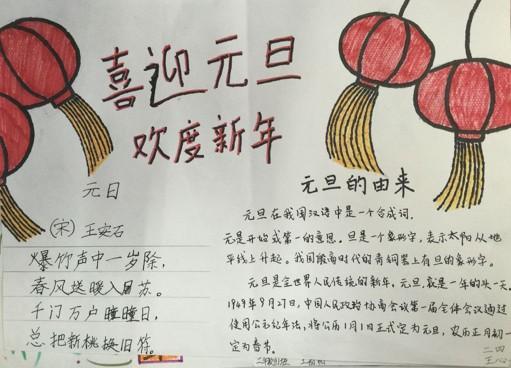 喜迎元旦
欢度新年
元日
(宋) 王安石
爆竹声中一岁除,
春风送暖入屠苏。
千门万户曈曈日,
总把新桃换旧符。
元旦的由来
元旦在我国汉语中是一个合成词.
元是开始或第一的意思.旦是个象形字,表示太阳从地
平线上升起。我国殷商时代的青铜器上有旦的象形字。
元旦是全世界人民传统的新年,元旦,就是一年的头一天.
1949年9月27日,中国人民政治协商会议第一届全体会议通过
使用公元纪年法,将公历1月1日正式定为元旦,农历正月初一
定为春节。
二四